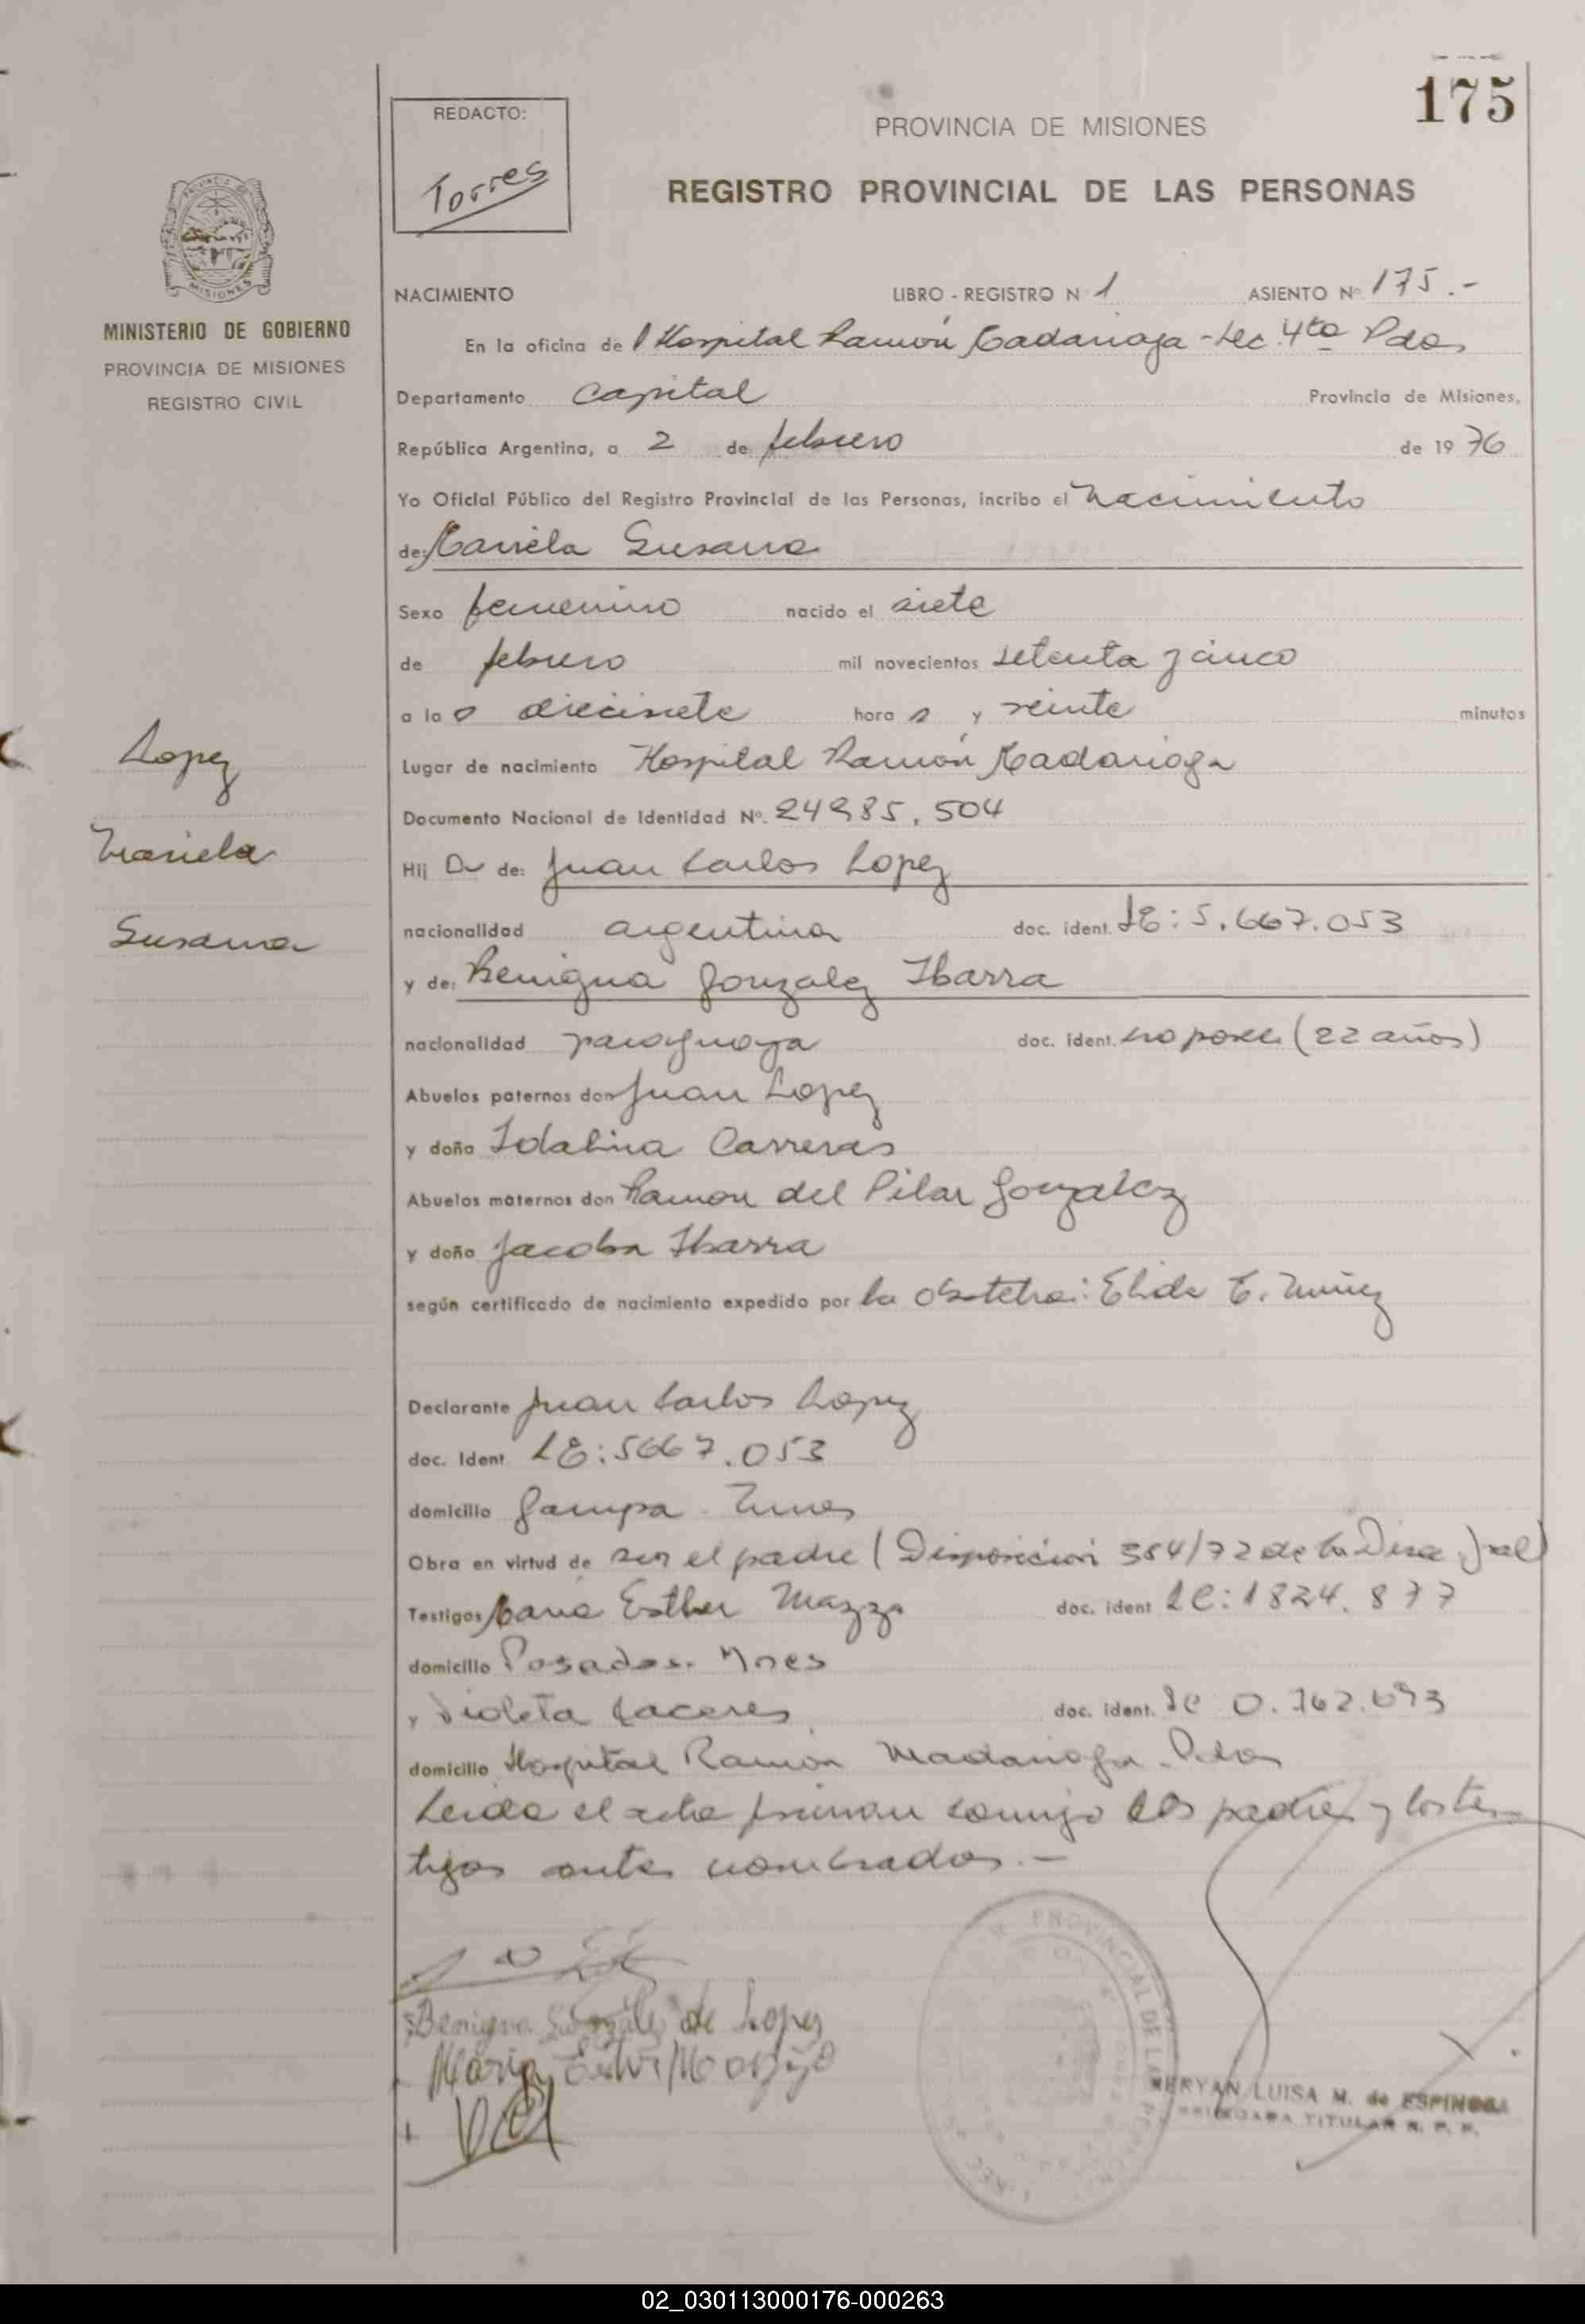 175
REDACTO:
Torres
PROVINCIA DE MISIONES
REGISTRO PROVINCIAL DE LAS PERSONAS
MISIONES
MINISTERIO DE GOBIERNO
PROVINCIA DE MISIONES
REGISTRO CIVIL
NACIMIENTO LIBRO - REGISTRO N 1 ASIENTO Nº 175.-
En la oficina de l Hospital Ramón Madariaga - Sec. 4ta Pdas
Departamento Capital Provincia de Misiones,
República Argentina, a 2 de febrero de 1976
Yo Oficial Público del Registro Provincial de las Personas, incribo el nacimiento
de: Mariela Susana
Sexo femenino nacido el siete
de febrero mil novecientos setenta y cinco
a las diecisiete horas y veinte minutos
Lopez
Lugar de nacimiento Hospital Ramón Madariaga
Documento Nacional de Identidad Nº. 24985.504
Mariela
Hij a de: Juan Carlos Lopez
Susana
nacionalidad argentina doc. ident. LE: 5.667.053
y de: Benigna Gonzalez Ibarra
nacionalidad paraguaya doc. ident. no posee (22 años)
Abuelos paternos don Juan Lopez
y doña Idalina Carreras
Abuelos maternos don Ramon del Pilar Gonzalez
y doña Jacoba Ibarra
según certificado de nacimiento expedido por la obstetra: Elida E. Nuñez
Declarante Juan Carlos Lopez
doc. Ident. LE: 5667.053
domicilio Garupa
Obra en virtud de ser el padre (Disposición 384/72 de la Direc. Gral)
Testigos María Esther Mazzo doc. ident LC: 1824.877
domicilio Posadas. Mnes
y Violeta Caceres doc. ident. LC 0.762.693
domicilio Hospital Ramón Madariaga. Pdas
Leida el acta firman conmigo los padres y los tes
tigos antes nombrados.-
Benigna Gonzalez de Lopez
Maria Ester
PROVINCIAL DE LA
MERYAN LUISA M. de ESPINOSA
TITULAR R. P. P.
02_030113000176-000263